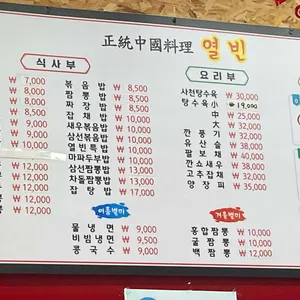 正統中國料理 열빈
식사부
₩ 7,000
₩ 8,500
₩ 9,000
₩ 9,000
₩ 10,000
₩ 12,000
₩ 12,000
₩ 12,000
볶음밥 ₩ 8,500
짬뽕밥 ₩ 8,500
짜장밥 ₩ 8,500
잡채밥 ₩ 10,000
새우볶음밥 ₩ 10,000
삼선볶음밥 ₩ 10,000
열빈특밥 ₩ 10,000
마파두부밥 ₩ 10,000
삼선짬뽕밥 ₩ 13,000
차돌짬뽕밥 ₩ 13,000
잡탕밥 ₩ 17,000
여름별미
물냉면 ₩ 9,000
비빔냉면 ₩ 9,500
콩국수 ₩ 9,000
요리부
사천탕수육 ₩ 30,000
탕수육 小 19,000
中 ₩ 25,000
大 ₩ 32,000
깐풍기
유산슬
팔보채
깐쇼새우
고추잡채
양장피 ₩ 35,000
겨울별미
홍합짬뽕 ₩ 10,000
굴짬뽕 ₩ 10,000
백짬뽕 ₩ 12,000